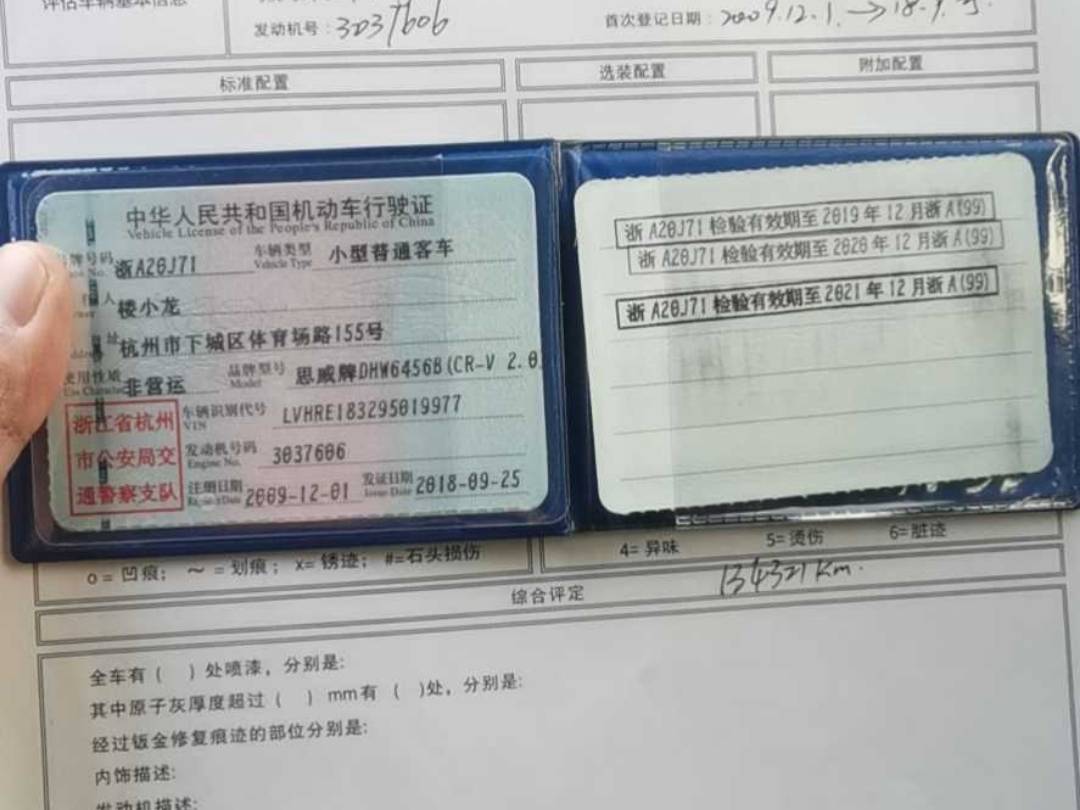 评估车辆基本信息
发动机号：3037606
首次登记日期：2009.12.1. → 18.9.
标准配置
选装配置
附加配置
中华人民共和国机动车行驶证
Vehicle License of the People's Republic of China
号牌号码 浙A20J71 车辆类型 小型普通客车
Plate No. Vehicle Type
人 楼小龙
址 杭州市下城区体育场路155号
使用性质 非营运 品牌型号 思威牌DHW6456B(CR-V 2.0
Use Character Model
浙江省杭州
市公安局交
通警察支队
车辆识别代号 LVHRE183295019977
VIN
发动机号码 3037606
Engine No.
注册日期 2009-12-01 发证日期 2018-09-25
Register Date Issue Date
浙 A20J71 检验有效期至 2019 年 12 月浙 A(99)
浙 A20J71 检验有效期至 2020 年 12 月浙 A(99)
浙 A20J71 检验有效期至 2021 年 12 月浙 A(99)
o = 凹痕； ～ = 划痕； x= 锈迹； #=石头损伤
4= 异味 5= 烫伤 6= 脏迹
综合评定
134321 km.
全车有（ ）处喷漆，分别是:
其中原子灰厚度超过（ ）mm有（ ）处，分别是:
经过钣金修复痕迹的部位分别是:
内饰描述:
发动机描述: